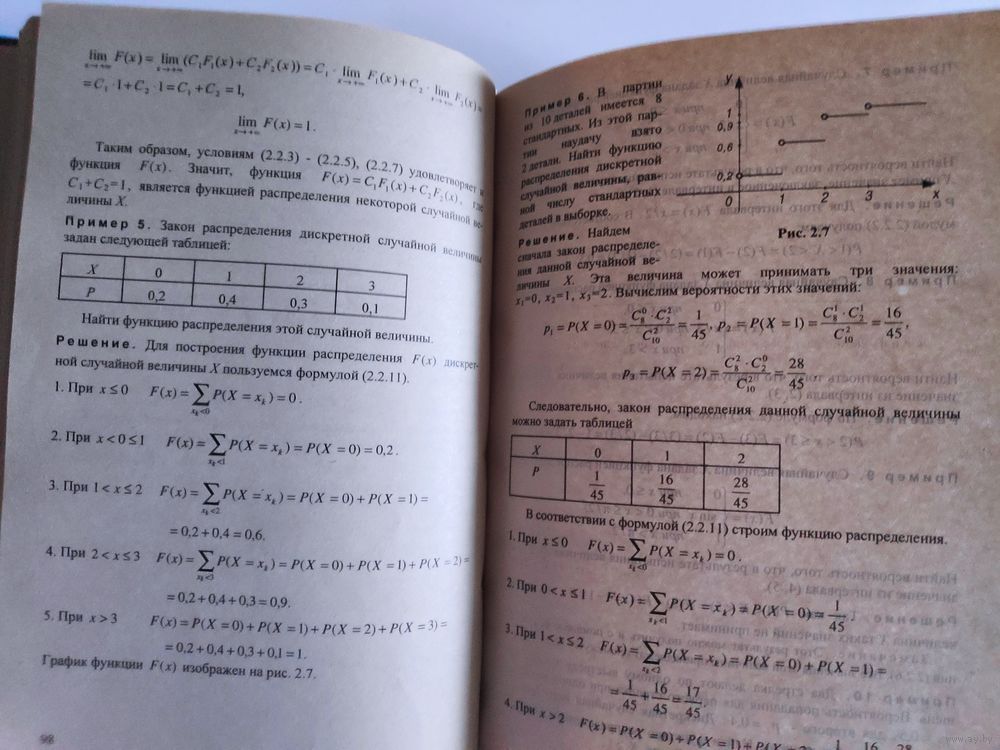 lim F(x) = lim (C₁F₁(x) + C₂F₂(x)) = C₁ · lim F₁(x) + C₂ · lim F₂(x) =
x→+∞ x→+∞ x→+∞ x→+∞
= C₁ · 1 + C₂ · 1 = C₁ + C₂ = 1,
lim F(x) = 1.
x→+∞
Таким образом, условиям (2.2.3) - (2.2.5), (2.2.7) удовлетворяет и
функция F(x). Значит, функция F(x) = C₁F₁(x) + C₂F₂(x), где
C₁+C₂=1, является функцией распределения некоторой случайной ве-
личины X.
Пример 5. Закон распределения дискретной случайной величины
задан следующей таблицей:
X 0 1 2 3
P 0,2 0,4 0,3 0,1
Найти функцию распределения этой случайной величины.
Решение. Для построения функции распределения F(x) дискрет-
ной случайной величины X пользуемся формулой (2.2.11).
1. При x ≤ 0 F(x) = ∑ P(X = xₖ) = 0.
xₖ<0
2. При x < 0 ≤ 1 F(x) = ∑ P(X = xₖ) = P(X = 0) = 0,2.
xₖ<1
3. При 1 < x ≤ 2 F(x) = ∑ P(X = xₖ) = P(X = 0) + P(X = 1) =
xₖ<2
= 0,2 + 0,4 = 0,6.
4. При 2 < x ≤ 3 F(x) = ∑ P(X = xₖ) = P(X = 0) + P(X = 1) + P(X = 2) =
xₖ<3
= 0,2 + 0,4 + 0,3 = 0,9.
5. При x > 3 F(x) = P(X = 0) + P(X = 1) + P(X = 2) + P(X = 3) =
= 0,2 + 0,4 + 0,3 + 0,1 = 1.
График функции F(x) изображен на рис. 2.7.
98
Пример 6. В партии
из 10 деталей имеется 8
стандартных. Из этой пар-
тии наудачу взято
2 детали. Найти функцию
распределения дискретной
случайной величины, рав-
ной числу стандартных
деталей в выборке.
Решение. Найдем
сначала закон распределе-
ния данной случайной ве-
y
1
0,9
0,6
0,2
0 1 2 3 x
Рис. 2.7
личины X. Эта величина может принимать три значения:
x₁=0, x₂=1, x₃=2. Вычислим вероятности этих значений:
p₁ = P(X = 0) = C₈⁰ · C₂² / C₁₀² = 1/45, p₂ = P(X = 1) = C₈¹ · C₂¹ / C₁₀² = 16/45,
p₃ = P(X = 2) = C₈² · C₂⁰ / C₁₀² = 28/45
Следовательно, закон распределения данной случайной величины
можно задать таблицей
X 0 1 2
P 1/45 16/45 28/45
В соответствии с формулой (2.2.11) строим функцию распределения.
1. При x ≤ 0 F(x) = ∑ P(X = xₖ) = 0.
xₖ<0
2. При 0 < x ≤ 1 F(x) = ∑ P(X = xₖ) = P(X = 0) = 1/45.
xₖ<1
3. При 1 < x ≤ 2 F(x) = ∑ P(X = xₖ) = P(X = 0) + P(X = 1) =
xₖ<2
= 1/45 + 16/45 = 17/45.
4. При x > 2 F(x) = P(X = 0) + P(X = 1) + P(X = 2) =
www.ay.by